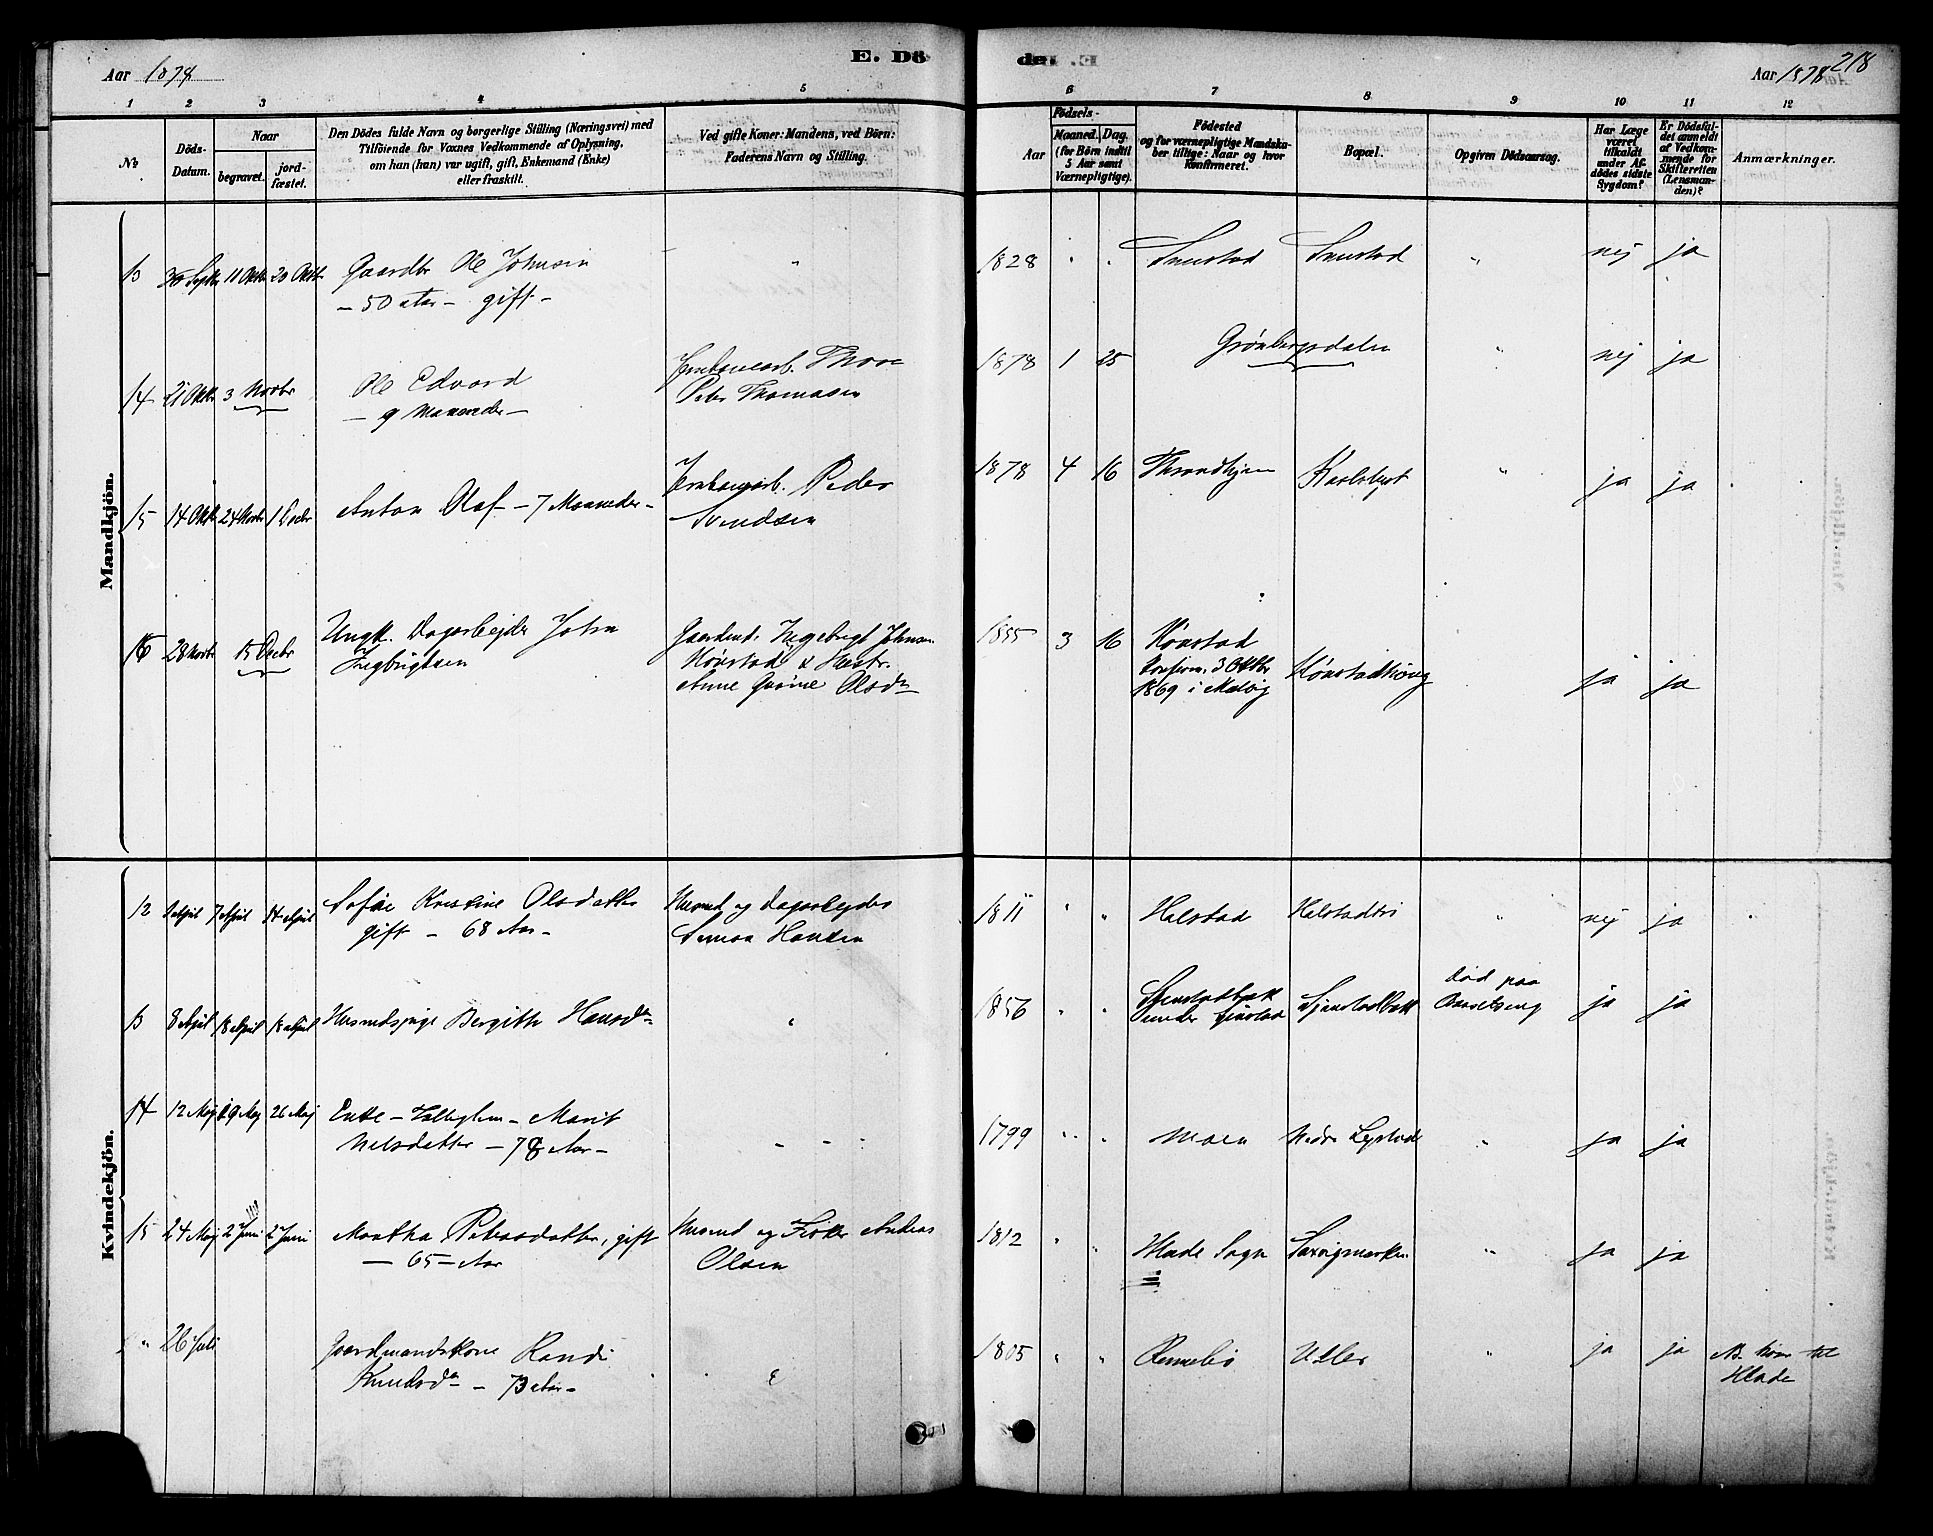 Aar 1878
E. Dö
den
Aar 1878
218
1 2 3 4 5
6 7 8 9 10 11 12
No
Döds-
Datum.
Naar
begravet.
jord-
fæstet.
Den Dödes fulde Navn og borgerlige Stilling (Næringsvei) med
Tilföiende for Voxnes Vedkommende af Oplysning,
om han (hun) var ugift, gift, Enkemand (Enke)
eller fraskilt.
Ved gifte Koner: Mandens, ved Börn:
Faderens Navn og Stilling.
Födsels-
Aar
Maaned. Dag.
(for Börn indtil
5 Aar samt
Værnepligtige).
Födested
og for værnepligtige Mandska-
ber tillige: Naar og hvor
Konfirmeret.
Bopæl.
Opgiven Dödsaarsag.
Har Læge
været
tilkaldt
under Af-
dödes sidste
Sygdom?
Er Dödsfal-
det anmeldt
af Vedkom-
mende for
Skifteretten
(Lensman-
den)?
Anmærkninger.
Mandkjön.
13 30 Septbr 11 Oktbr 20 Oktbr Gaardbr Ole Johnsen " 1828 " " Saxstad Saxstad " nej ja
- 50 Aar - gift -
14 21 Oktbr 3 Novbr Ole Edvard
- 9 Maaneder -
Jernbanearb. Thore
Peter Thomasen
1878 1 25 Grönbergsdalen " nej ja
15 14 Oktbr 24 Novbr 1 Decbr Anton Olaf - 7 Maaneder -
Jernbanearb. Peder
Svendsen
1878 4 16 Throndhjem Karlslyst " ja ja
16 28 Novbr 15 Decbr Ungk. Dagarbejder John
Ingbrigtsen
Gaardmd. Ingebrigt Johnsen
Könstad & Hustr.
Anne Olsdr
1855 3 16 Könstad
Konfirm. 3 Oktbr
1869 i Malvig
ja ja
Kvindekjön.
12 April 7 April 14 April Sofie Kristine Olsdatter
gift - 68 Aar -
Husmd og Dagarbejder
Simon Hansen
1811 " " Helstad Helstadtrö " nej ja
13 8 April 18 April 18 April Husmdspige Bergithe Hansdr " 1856 " "
under
død paa
ja ja
14 12 Maj 19 Maj 26 Maj Enke - - Marit
Nilsdatter - 78 Aar -
1799 " " Moen Nedre " ja ja
15 24 Maj 2 Juni 2 Juni Martha Petersdatter, gift
- 65 - Aar
Husmd og Fisker Anders
Olsen
1812 " " Hlade Sogn Saxvigmarken " ja ja
" 26 Juli Gaardmandskone Randi
Knudsdr - 73 Aar -
" 1805 " " Rennebö Uller " ja ja
NB. hörer til
Hlade